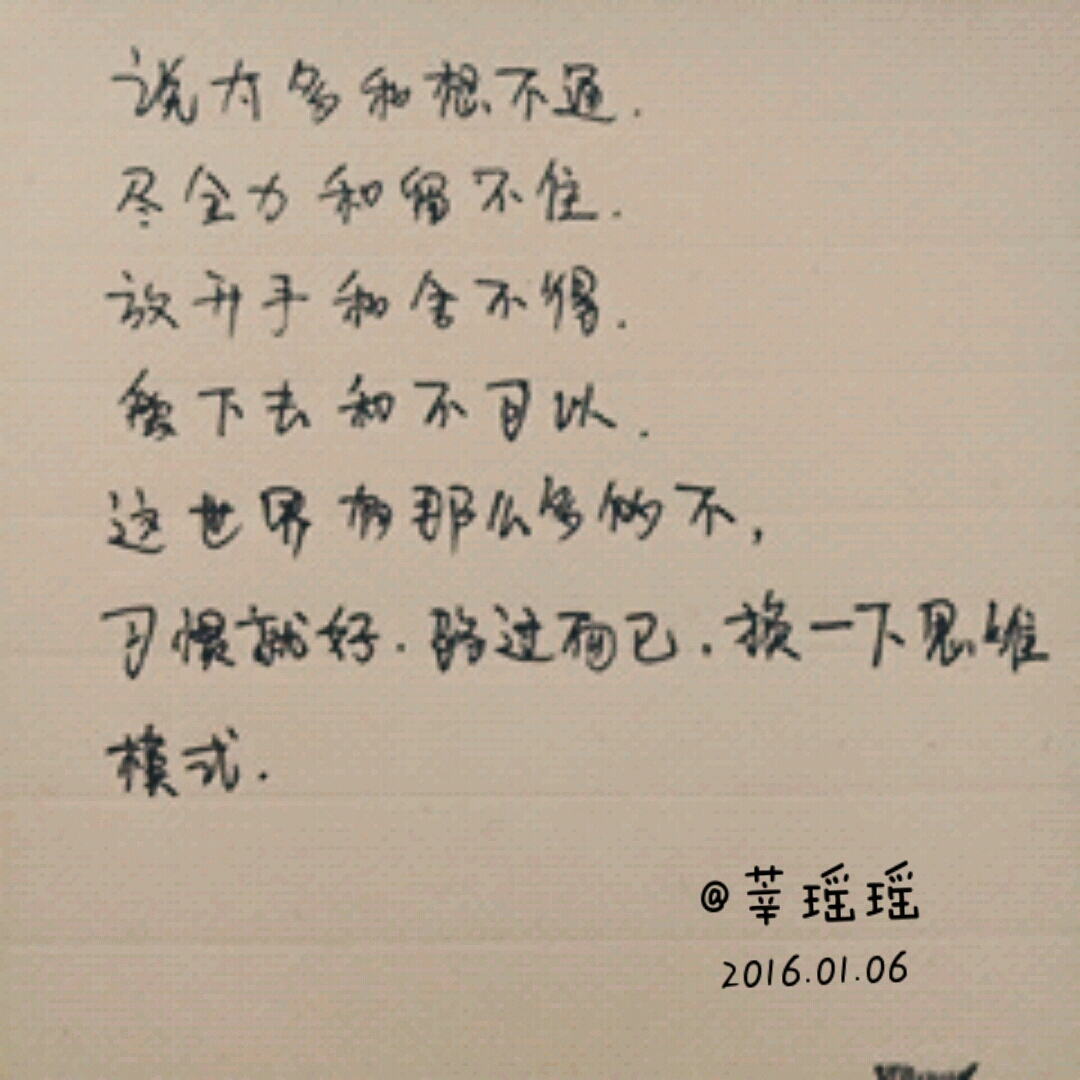 说太多和想不通.
尽全力和留不住.
放开手和舍不得.
爱下去和不可以.
这世界有那么多的不,
习惯就好.路过而已.换一下思维
模式.
@莘瑶瑶
2016.01.06